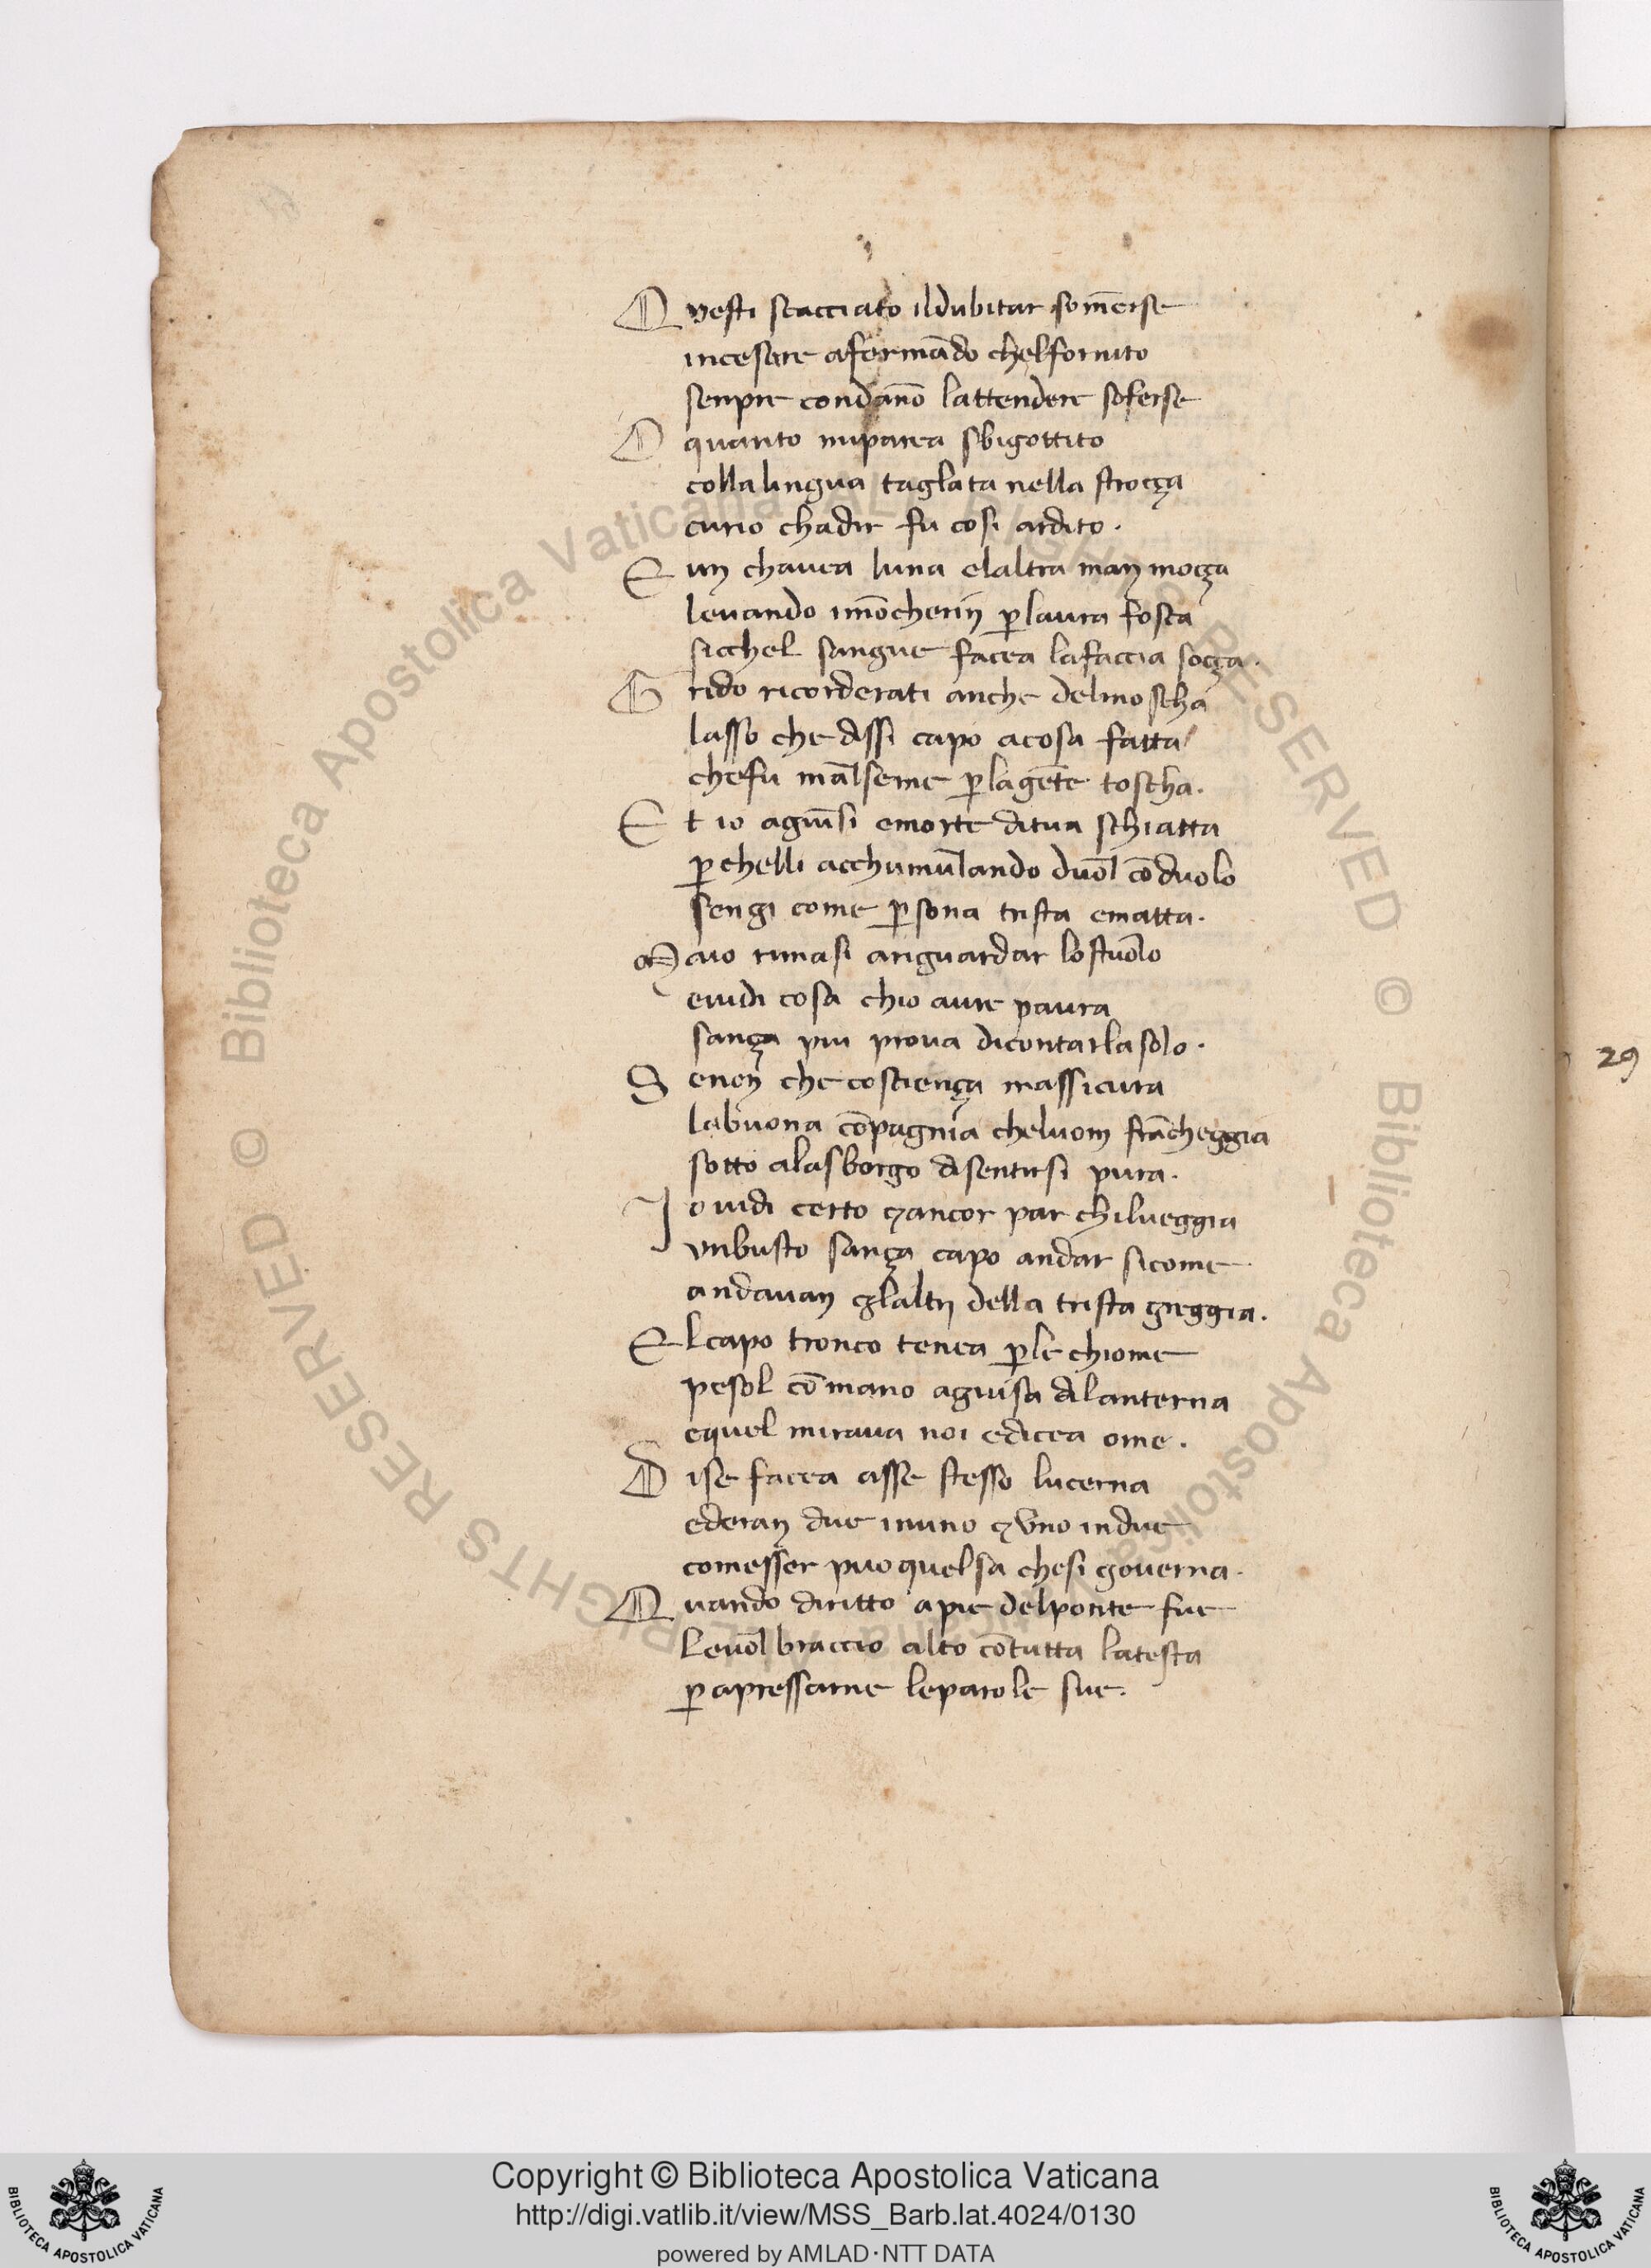 Q vesti scacciato ildubitar som̄erse
incesare afermādo chelfornito
senpre condāno lattendere soferse
O quanto miparea sbigottito
collalingua taglata nella strocça
curio chadir fu cosi ardito.
E un chavea luna elaltra man moçça
levando imōcherin ꝑlaura fosca
sicchel sangue facea lafaccia soçça.
G rido ricorderati anche delmoscha
lasso che dissi capo acosa fatta
chefu māl seme ꝑlagēte toscha.
E t io agiūsi emorte ditua schiatta
ꝑchelli acchumūlando duōl cōduolo
sengi come ꝑsona trista ematta.
M aio rimasi ariguardar lostuōlo
evidi cosa chio avre paura
sança piu prova dicontarlasolo.
S enon che cosciença massicura
labuona cōpagnia cheluom frācheggia
sotto alasborgo disentirsi pura.
I o vidi certo ⁊ancor par chilveggia
unbusto sança capo andar sicome
andavan glaltri della trista greggia.
E lcapo tronco tenea ꝑle chiome
pesol cō mano aguisa dilanterna
equel mirava noi edicea ome.
D ise facea asse stesso lucerna
ederan due inuno ⁊uno indue
comesser puo quelsa chesi governa.
Q uando diritto apie delponte fue
Levōl braccio alto cōtutta latesta
ꝑapressarne leparole sue.
29
Copyright © Biblioteca Apostolica Vaticana
http://digi.vatlib.it/view/MSS_Barb.lat.4024/0130
powered by AMLAD·NTT DATA
BIBLIOTECA APOSTOLICA VATICANA
BIBLIOTECA APOSTOLICA VATICANA
© Biblioteca Apostolica Vaticana ALL RIGHTS RESERVED
© Biblioteca Apostolica Vaticana ALL RIGHTS RESERVED